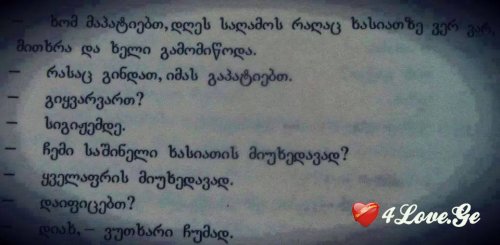 – ხომ მაპატიებთ, დღეს საღამოს რაღაც ხასიათზე ვერ ვარ,
მითხრა და ხელი გამომიწოდა.
– რასაც გინდათ, იმას გაპატიებთ.
– გიყვარვართ?
– სიგიჟემდე.
– ჩემი საშინელი ხასიათის მიუხედავად?
– ყველაფრის მიუხედავად.
– დაიფიცებთ?
– დიახ, – ვუთხარი ჩუმად.
4Love.Ge